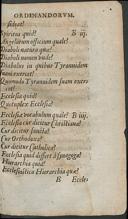 ORDINANDORVM.
sideras?
Spiritus quid? B iij.
Angelorum officium quale?
Diaboli natura quæ?
Diaboli nomen unde?
Diabolus in quibus Tyrannidem
suam exerceat?
Quomodo Tyrannidem suam exerceat
Ecclesia quid?
Quotuplex Ecclesia?
Ecclesiæ vocabulum quale? B iiij.
Ecclesia cur dicitur Christiana?
Cur dicitur sancta?
Cur Orthodoxa?
Cur dicitur Catholica?
Ecclesia quid differt à Synagoga?
Hierarchia quid?
Ecclesiastica Hierarchia quæ?
B Eccle-